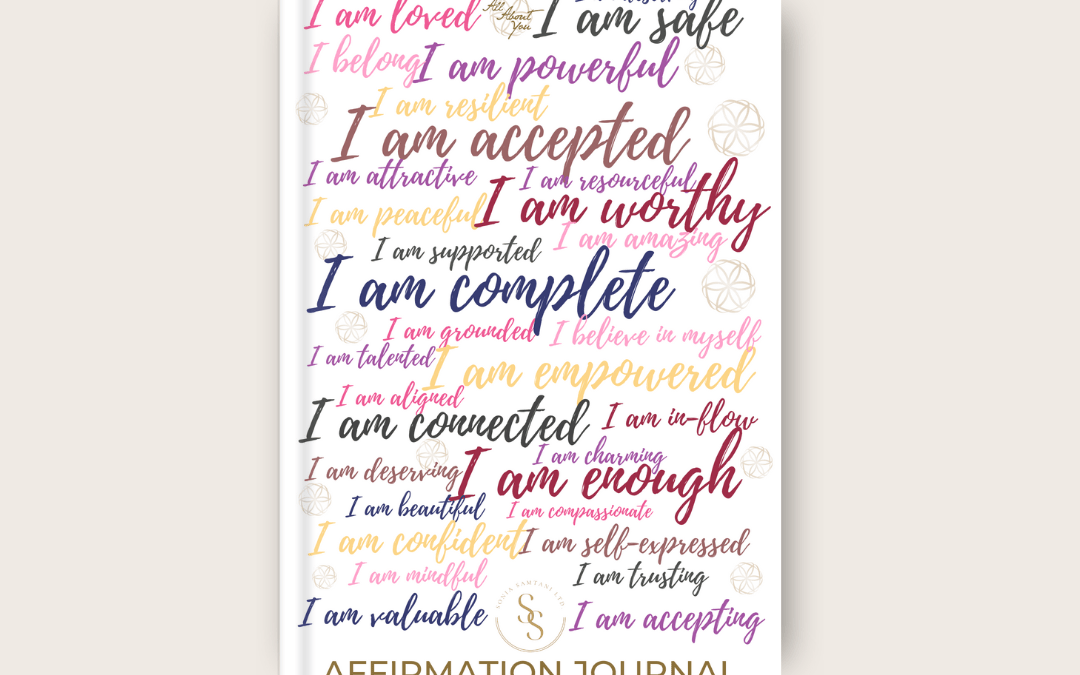 I am loved
All About You
I am safe
I belong
I am powerful
I am resilient
I am accepted
I am attractive
I am resourceful
I am peaceful
I am worthy
I am amazing
I am supported
I am complete
I am grounded
I believe in myself
I am talented
I am empowered
I am aligned
I am connected
I am in-flow
I am charming
I am deserving
I am enough
I am beautiful
I am compassionate
I am confident
I am self-expressed
I am mindful
I am trusting
SONIA SAMTANI LTD
SS
I am valuable
I am accepting
AFFIRMATION JOURNAL